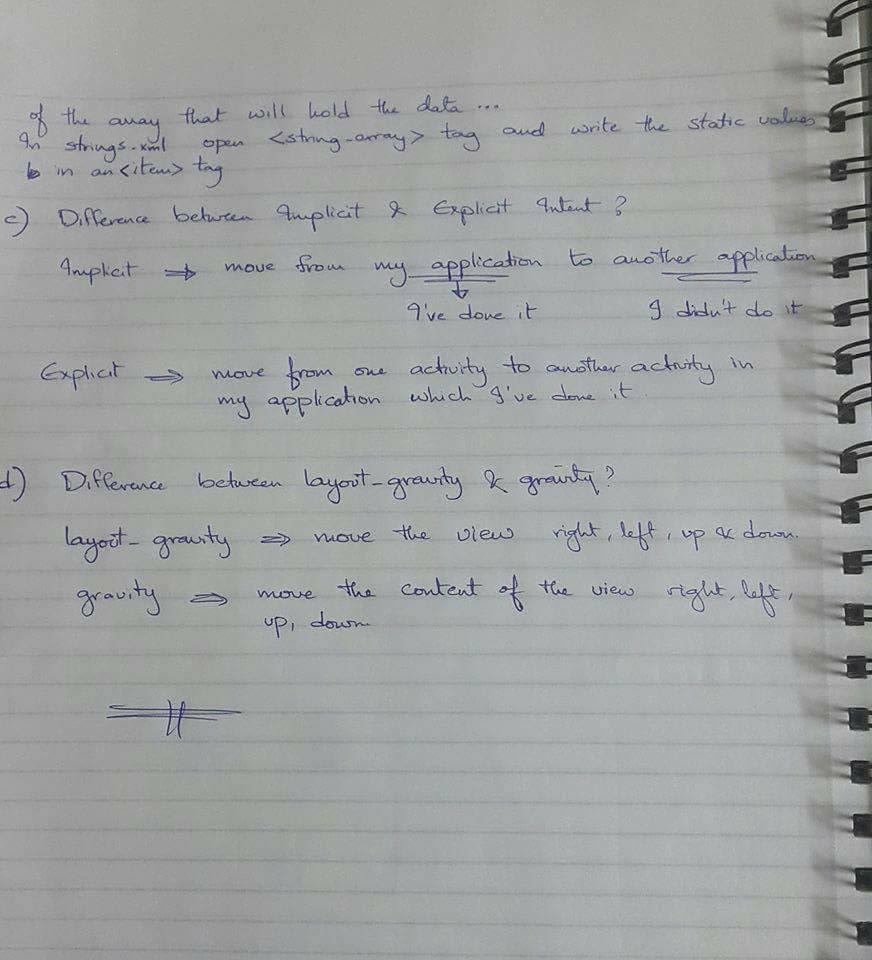 of the array that will hold the data ...
In strings.xml open <string-array> tag and write the static values
in an <item> tag
c) Difference between Implicit & Explicit Intent ?
Implicit ⇒ move from my application to another application
I've done it I didn't do it
Explicit ⇒ move from one activity to another activity in
my application which I've done it.
d) Difference between layout-gravity & gravity ?
layout-gravity ⇒ move the view right, left, up & down.
gravity ⇒ move the content of the view right, left,
up, down